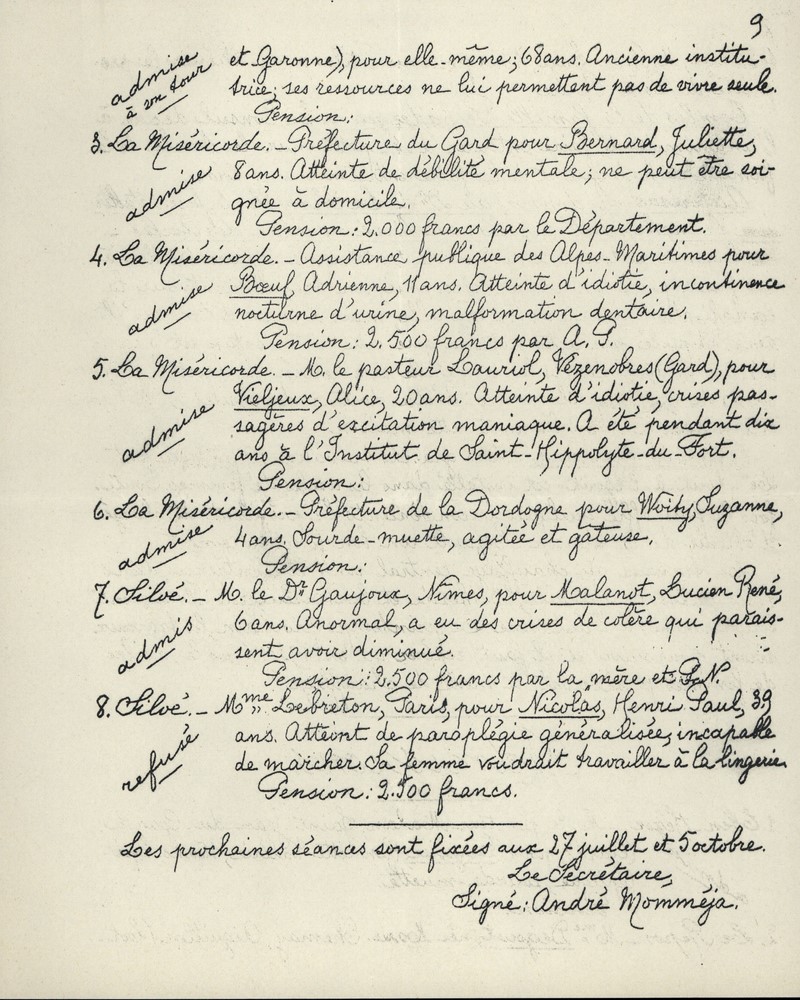 9
et Garonne), pour elle-même; 68 ans. Ancienne institu-
admise
à son tour
trice; ses ressources ne lui permettent pas de vivre seule.
Pension:
3. La Miséricorde. – Préfecture du Gard pour Bernard, Juliette,
8 ans. Atteinte de débilité mentale; ne peut être soi-
admise
gnée à domicile.
Pension: 2.000 francs par le Département.
4. La Miséricorde. – Assistance publique des Alpes-Maritimes pour
Bœuf, Adrienne, 11 ans. Atteinte d'idiotie, incontinence
admise
nocturne d'urine, malformation dentaire.
Pension: 2.500 francs par A.P.
5. La Miséricorde. – M. le pasteur Lauriol, Vézenobres (Gard), pour
Vieljeux, Alice, 20 ans. Atteinte d'idiotie, crises pas-
admise
sagères d'excitation maniaque. A été pendant dix
ans à l'Institut de Saint-Hippolyte-du-Fort.
Pension:
6. La Miséricorde. – Préfecture de la Dordogne pour Woity, Suzanne,
admise
4 ans. Sourde-muette, agitée et gâteuse.
Pension:
7. Siloé. – M. le Dr Gaujoux, Nîmes, pour Malanot, Lucien René,
6 ans. Anormal, a eu des crises de colère qui parais-
admis
sent avoir diminué.
Pension: 2.500 francs par la mère et P.N.
8. Siloé. – Mme Lebreton, Paris, pour Nicolas, Henri Paul, 39
ans. Atteint de paraplégie généralisée, incapable
refusé
de marcher. Sa femme voudrait travailler à la lingerie.
Pension: 2.500 francs.
Les prochaines séances sont fixées aux 27 juillet et 5 octobre.
Le Secrétaire,
Signé: André Momméja.